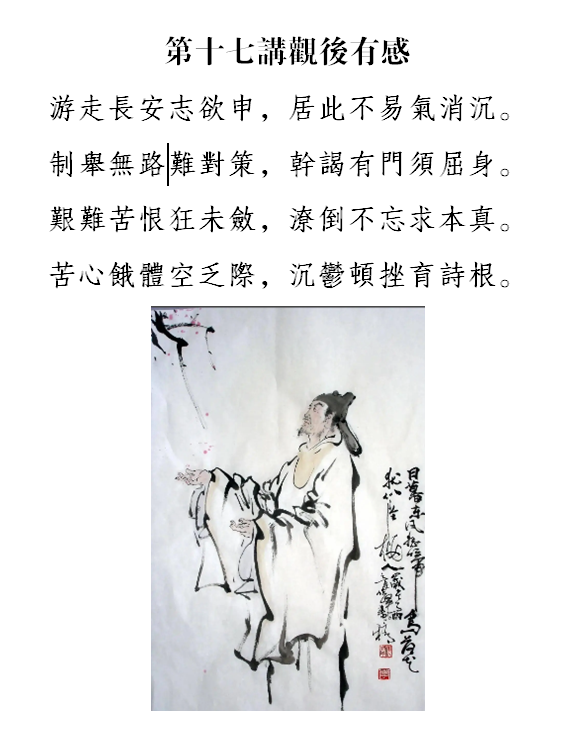 第十七講觀後有感
游走長安志欲申，居此不易氣消沉。
制舉無路難對策，幹謁有門須屈身。
艱難苦恨狂未斂，潦倒不忘求本真。
苦心餓體空乏際，沉鬱頓挫育詩根。
日暮東風